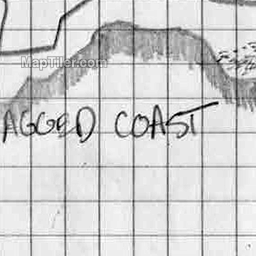 MapTiler.com
AGGED COAST